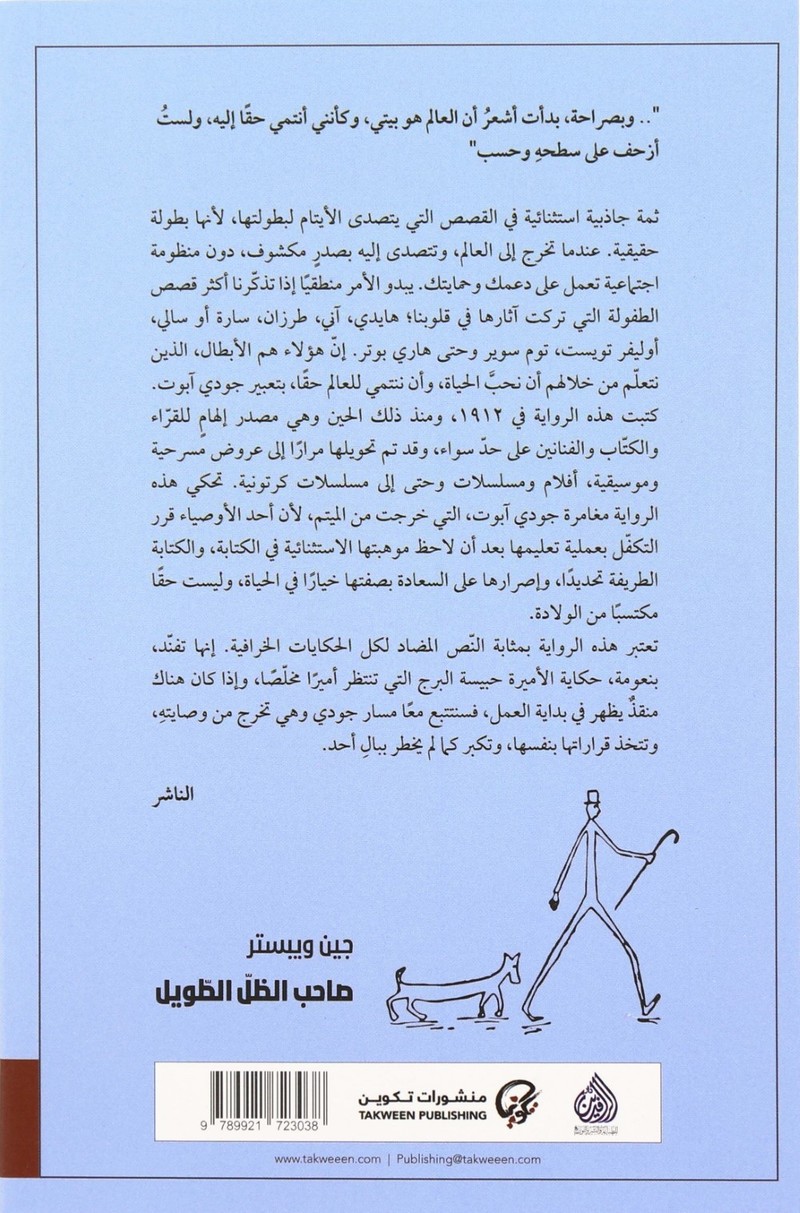 ".. وبصراحة، بدأت أشعرُ أن العالم هو بيتي، وكأنني أنتمي حقًا إليه، ولستُ
أزحف على سطحهِ وحسب"
ثمة جاذبية استثنائية في القصص التي يتصدى الأيتام لبطولتها، لأنها بطولة
حقيقية. عندما تخرج إلى العالم، وتتصدى إليه بصدرٍ مكشوف، دون منظومة
اجتماعية تعمل على دعمك وحمايتك. يبدو الأمر منطقيًا إذا تذكّرنا أكثر قصص
الطفولة التي تركت آثارها في قلوبنا؛ هايدي، آني، طرزان، سارة أو سالي،
أوليفر تويست، توم سوير وحتى هاري بوتر. إنّ هؤلاء هم الأبطال، الذين
نتعلّم من خلالهم أن نحبَّ الحياة، وأن ننتمي للعالم حقًا، بتعبير جودي آبوت.
كتبت هذه الرواية في ١٩١٢، ومنذ ذلك الحين وهي مصدر إلهامٍ للقرّاء
والكتّاب والفنانين على حدّ سواء، وقد تم تحويلها مرارًا إلى عروض مسرحية
وموسيقية، أفلام ومسلسلات وحتى إلى مسلسلات كرتونية. تحكي هذه
الرواية مغامرة جودي آبوت، التي خرجت من الميتم، لأن أحد الأوصياء قرر
التكفّل بعملية تعليمها بعد أن لاحظ موهبتها الاستثنائية في الكتابة، والكتابة
الطريفة تحديدًا، وإصرارها على السعادة بصفتها خيارًا في الحياة، وليست حقًا
مكتسبًا من الولادة.
تعتبر هذه الرواية بمثابة النّص المضاد لكل الحكايات الخرافية. إنها تفنّد،
بنعومة، حكاية الأميرة حبيسة البرج التي تنتظر أميرًا مخلّصًا، وإذا كان هناك
منقذٌ يظهر في بداية العمل، فسنتتبع معًا مسار جودي وهي تخرج من وصايتهِ،
وتتخذ قراراتها بنفسها، وتكبر كما لم يخطر ببالِ أحد.
الناشر
جين ويبستر
صاحب الظلّ الطّويل
الرافدين
تكوين
منشورات تكوين
TAKWEEN PUBLISHING
9 789921 723038
www.takweeen.com | Publishing@takweeen.com